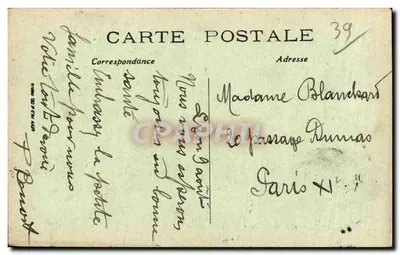 CARTE POSTALE
39
Correspondance
Adresse
Lyon 9 août
Nous vous espérons
toujours en bonne
santé
Embrassez la petite
famille pour nous
Votre tout dévoué
P Benoit
Madame Blanchard
20 passage Dumas
Paris XI